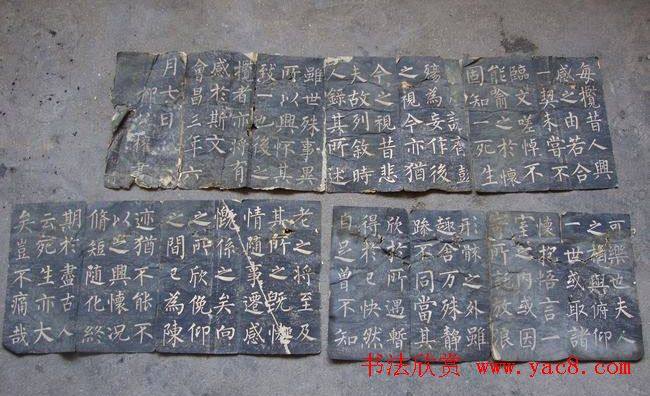 可樂也夫人
之相與俯仰
一世或取諸
懷抱悟言一
室之内或因
寄所託放浪
形骸之外雖
趣舍万殊静
躁不同當其
欣於所遇暫
得於己快然
自足曾不知
老之将至及
其所之既惓
情隨事遷感
慨係之矣向
之所欣俛仰
之間已為陳
迹猶不能不
以之興懷况
脩短隨化終
期於盡古人
云死生亦大
矣豈不痛哉
每攬昔人興
感之由若合
一契未嘗不
臨文嗟悼不
能喻之於懷
固知一死生
誕齊彭
殤為妄作後
之視今亦猶
今之視昔悲
夫故列敘時
人錄其所述
雖世殊事異
所以興懷其
致一也後之
攬者亦将有
感於斯文
會昌三年六
月七日
柳公權
书法欣赏 www.yac8.com